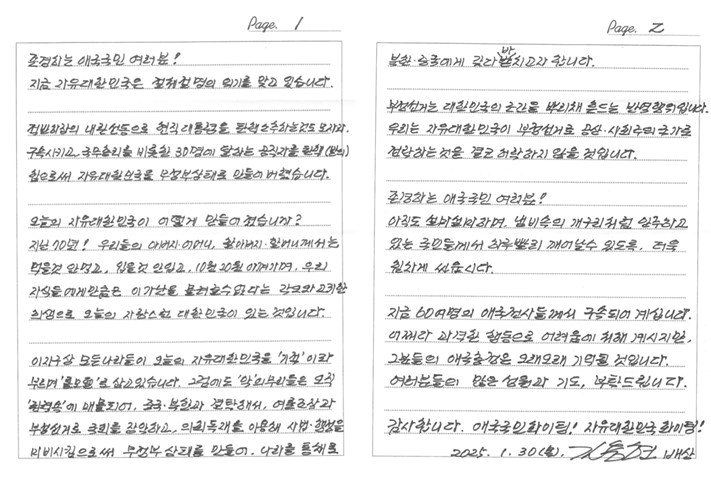 Page. 1
존경하는 애국국민 여러분!
지금 자유대한민국은 절체절명의 위기를 맞고 있습니다.
적반하장의 내란선동으로 현직 대통령을 탄핵소추하는것도 모자라,
구속시키고, 국무총리를 비롯한 30명에 달하는 공직자를 탄핵(발의)
함으로써 자유대한민국을 무정부상태로 만들어 버렸습니다.
오늘의 자유대한민국이 어떻게 만들어 졌습니까?
지난 70년! 우리들의 아버지·어머니, 할아버지·할머니께서는
먹을것 안먹고, 입을것 안입고, 10원 20원 아껴가며, 우리
자식들에게만큼은 이 가난을 물려줄수없다는 각오와 고귀한
희생으로 오늘의 자랑스런 대한민국이 있는 것입니다.
이 지구상 모든나라들이 오늘의 자유대한민국을 '기적'이라
부르며 '롤모델'로 삼고있습니다. 그럼에도 '악'의 무리들은 오직
'권력욕'에 매몰되어, 중국·북한과 결탁해서, 여론조작과
부정선거로 국회를 장악하고, 의회독재를 이용해 사법·행정을
마비시킴으로써 무정부 상태를 만들어, 나라를 통째로
Page. 2
북한·중국에게 갖다 바치고자 합니다.
부정선거는 대한민국의 근간을 뿌리채 흔드는 반역행위입니다.
우리는 자유대한민국이 부정선거로 공산·사회주의 국가로
전락하는것을 결코 허락하지 않을 것입니다.
존경하는 애국국민 여러분!
아직도 설마설마하며, 냄비속의 개구리처럼 안주하고
있는 국민들께서 하루빨리 깨어날수 있도록, 더욱
힘차게 싸웁시다.
지금 60여명의 애국전사들께서 구속되어 계십니다.
어쩌다 과격한 행동으로 어려움에 처해 계시지만,
그분들의 애국충정은 오래오래 기억될 것입니다.
여러분들의 많은 성원과 기도, 부탁드립니다.
감사합니다. 애국국민 화이팅! 자유대한민국 화이팅!
2025. 1. 30(목). 김용현 배상